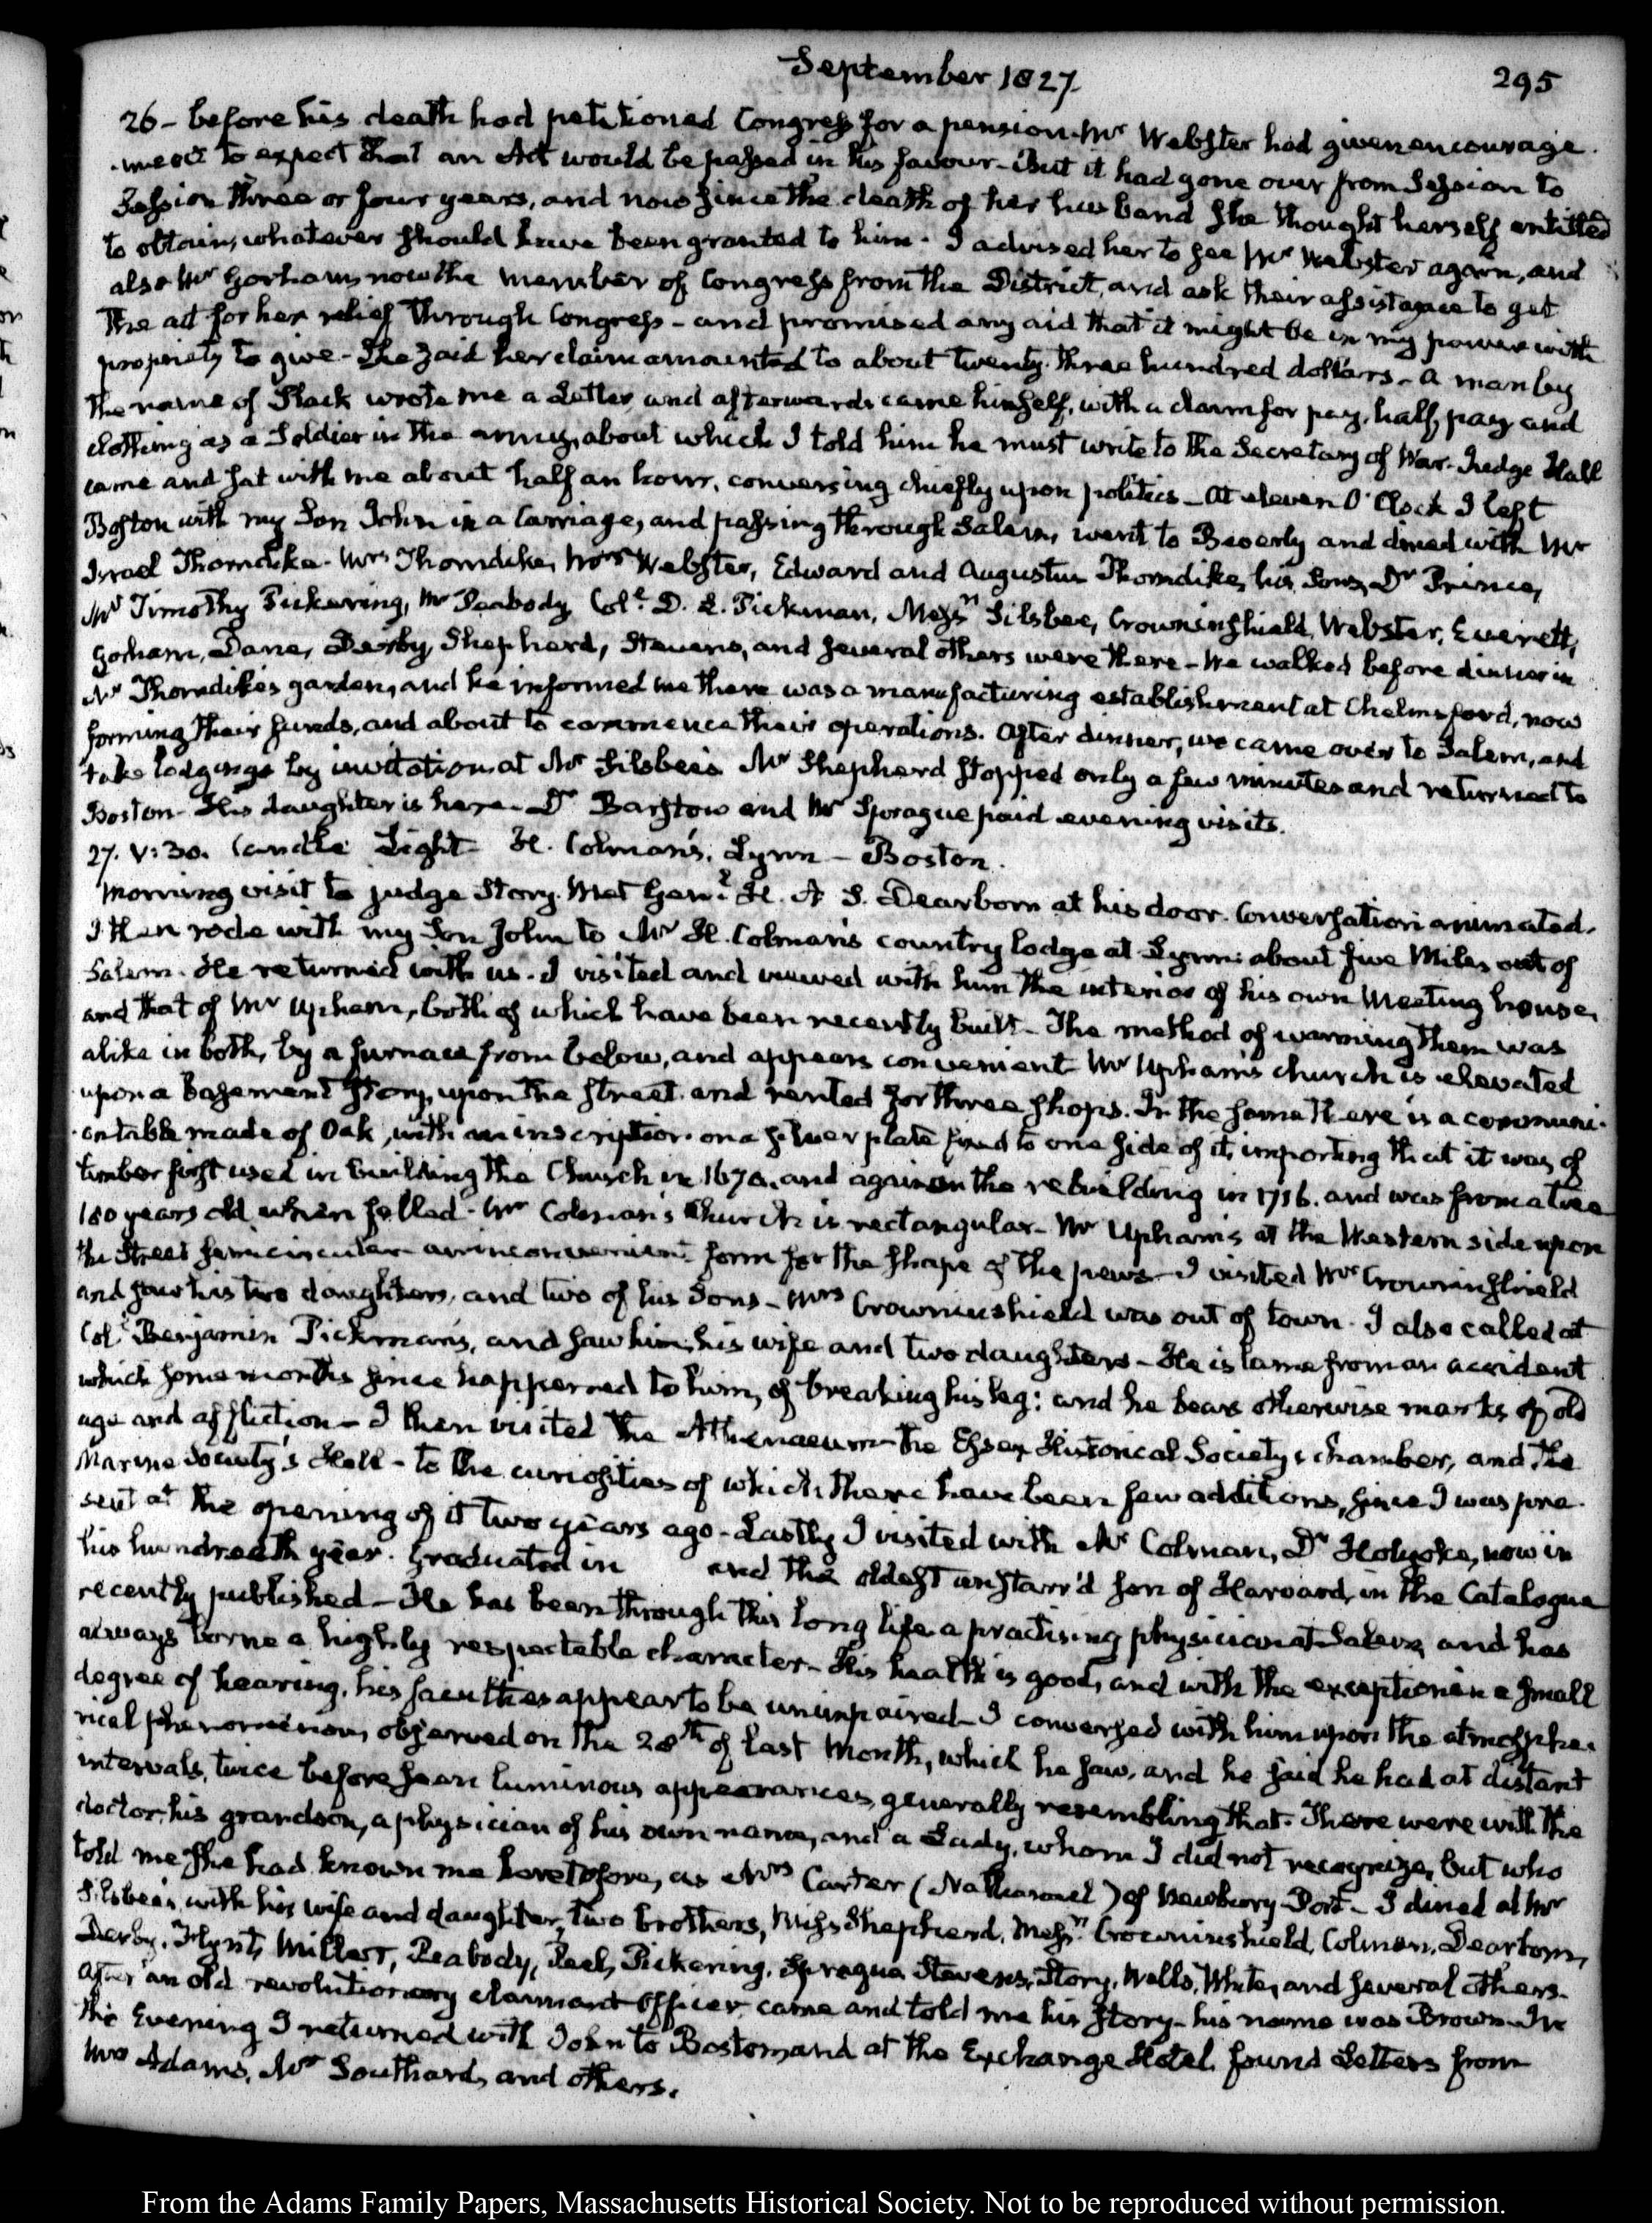 September 1827.
295
26 - before his death had petitioned Congress for a pension. Mr Webster had given encourage-
-ment to expect that an Act would be passed in his favour - But it had gone over from Session to
Session three or four years, and now since the death of her husband she thought herself entitled
to obtain, whatever should have been granted to him. I advised her to see Mr Webster again, and
also Mr Gorham, now the member of Congress from the District, and ask their assistance to get
the act for her relief through Congress - and promised any aid that it might be in my power with
propriety to give - She said her claim amounted to about twenty-three hundred dollars - A man by
the name of Slack wrote me a Letter, and afterwards came himself, with a claim for pay, half pay and
clothing as a Soldier in the army, about which I told him he must write to the Secretary of War. Judge Hall
came and sat with me about half an hour, conversing chiefly upon politics - At eleven O'Clock I left
Boston with my Son John in a Carriage, and passing through Salem, went to Beverly and dined with Mr
Israel Thorndike. Mrs Thorndike, Mrs Webster, Edward and Augustus Thorndike, his Sons, Dr Prince,
Mr Timothy Pickering, Mr Peabody, Col. D. L. Pickman, Messrs Silsbee, Crowninshield, Webster, Everett,
Gorham, Dane, Derby, Shepherd, Stevens, and several others were there - We walked before dinner in
Mr Thorndike's garden, and he informed me there was a manufacturing establishment at Chelmsford, now
forming their funds, and about to commence their operations. After dinner, we came over to Salem, and
take lodgings by invitation at Mr Silsbee's. Mr Shepherd stopped only a few minutes and returned to
Boston - His daughter is here - Dr Barstow and Mr Sprague paid evening visits.
27. V:30. Candle Light H. Colman's, Lynn - Boston.
Morning visit to judge Story. Met Genl. H. A. S. Dearborn at his door. Conversation animated.
I then rode with my Son John to Mr H. Colman's country lodge at Lynn: about five Miles out of
Salem. He returned with us - I visited and viewed with him the interior of his own Meeting house,
and that of Mr Upham, both of which have been recently built - The method of warming them was
alike in both, by a furnace from below, and appears convenient. Mr Upham's church is elevated
upon a basement Story, upon the street and rented for three shops. In the same there is a communi-
-on table made of Oak, with an inscription on a silver plate fixed to one side of it, importing that it was of
timber first used in building the Church in 1670. and again in the rebuilding in 1716. and was from a tree
180 years old when felled. Mr Colman's Church is rectangular - Mr Upham's at the Western side upon
the Street semicircular an inconvenient form for the shape of the pews - I visited Mr Crowninshield
and saw his two daughters, and two of his Sons - Mrs Crowninshield was out of town. I also called at
Col. Benjamin Pickman's, and saw him, his wife and two daughters - He is lame from an accident
which some months since happened to him, of breaking his leg: and he bears otherwise marks of old
age and affliction - I then visited the Athenaeum - the Essex Historical Society's chamber, and the
Marine Society's Hall - to the curiosities of which there have been few additions, since I was pre-
sent at the opening of it two years ago - Lastly I visited with Mr Colman, Dr Holyoke, now in
his hundredth year. Graduated in and the oldest unstarr'd son of Harvard, in the Catalogue
recently published - He has been through this long life a practising physician at Salem, and has
always borne a highly respectable character - His health is good, and with the exception in a small
degree of hearing, his faculties appear to be unimpaired - I conversed with him upon the atmosphe-
rical phenomenon, observed on the 28th of last Month, which he saw, and he said he had at distant
intervals, twice before seen luminous appearances, generally resembling that. There were with the
doctor, his grandson, a physician of his own name, and a Lady, whom I did not recognize, but who
told me she had known me heretofore, as Mrs Carter (Nathaniel) of Newbury-Port - I dined at Mr
Silsbee's with his wife and daughter, two brothers, Miss Shepherd, Messrs Crowninshield, Colman, Dearborn,
Derby, Flynt, Peabody, Peel, Pickering, Sprague, Stevens, Story, Wells, White, and several others.
After an old revolutionary claimant Officer, came and told me his story - his name was Brown - In
the Evening I returned with John to Boston, and at the Exchange Hotel, found Letters from
Mrs Adams, Mr Southard, and others.
From the Adams Family Papers, Massachusetts Historical Society. Not to be reproduced without permission.